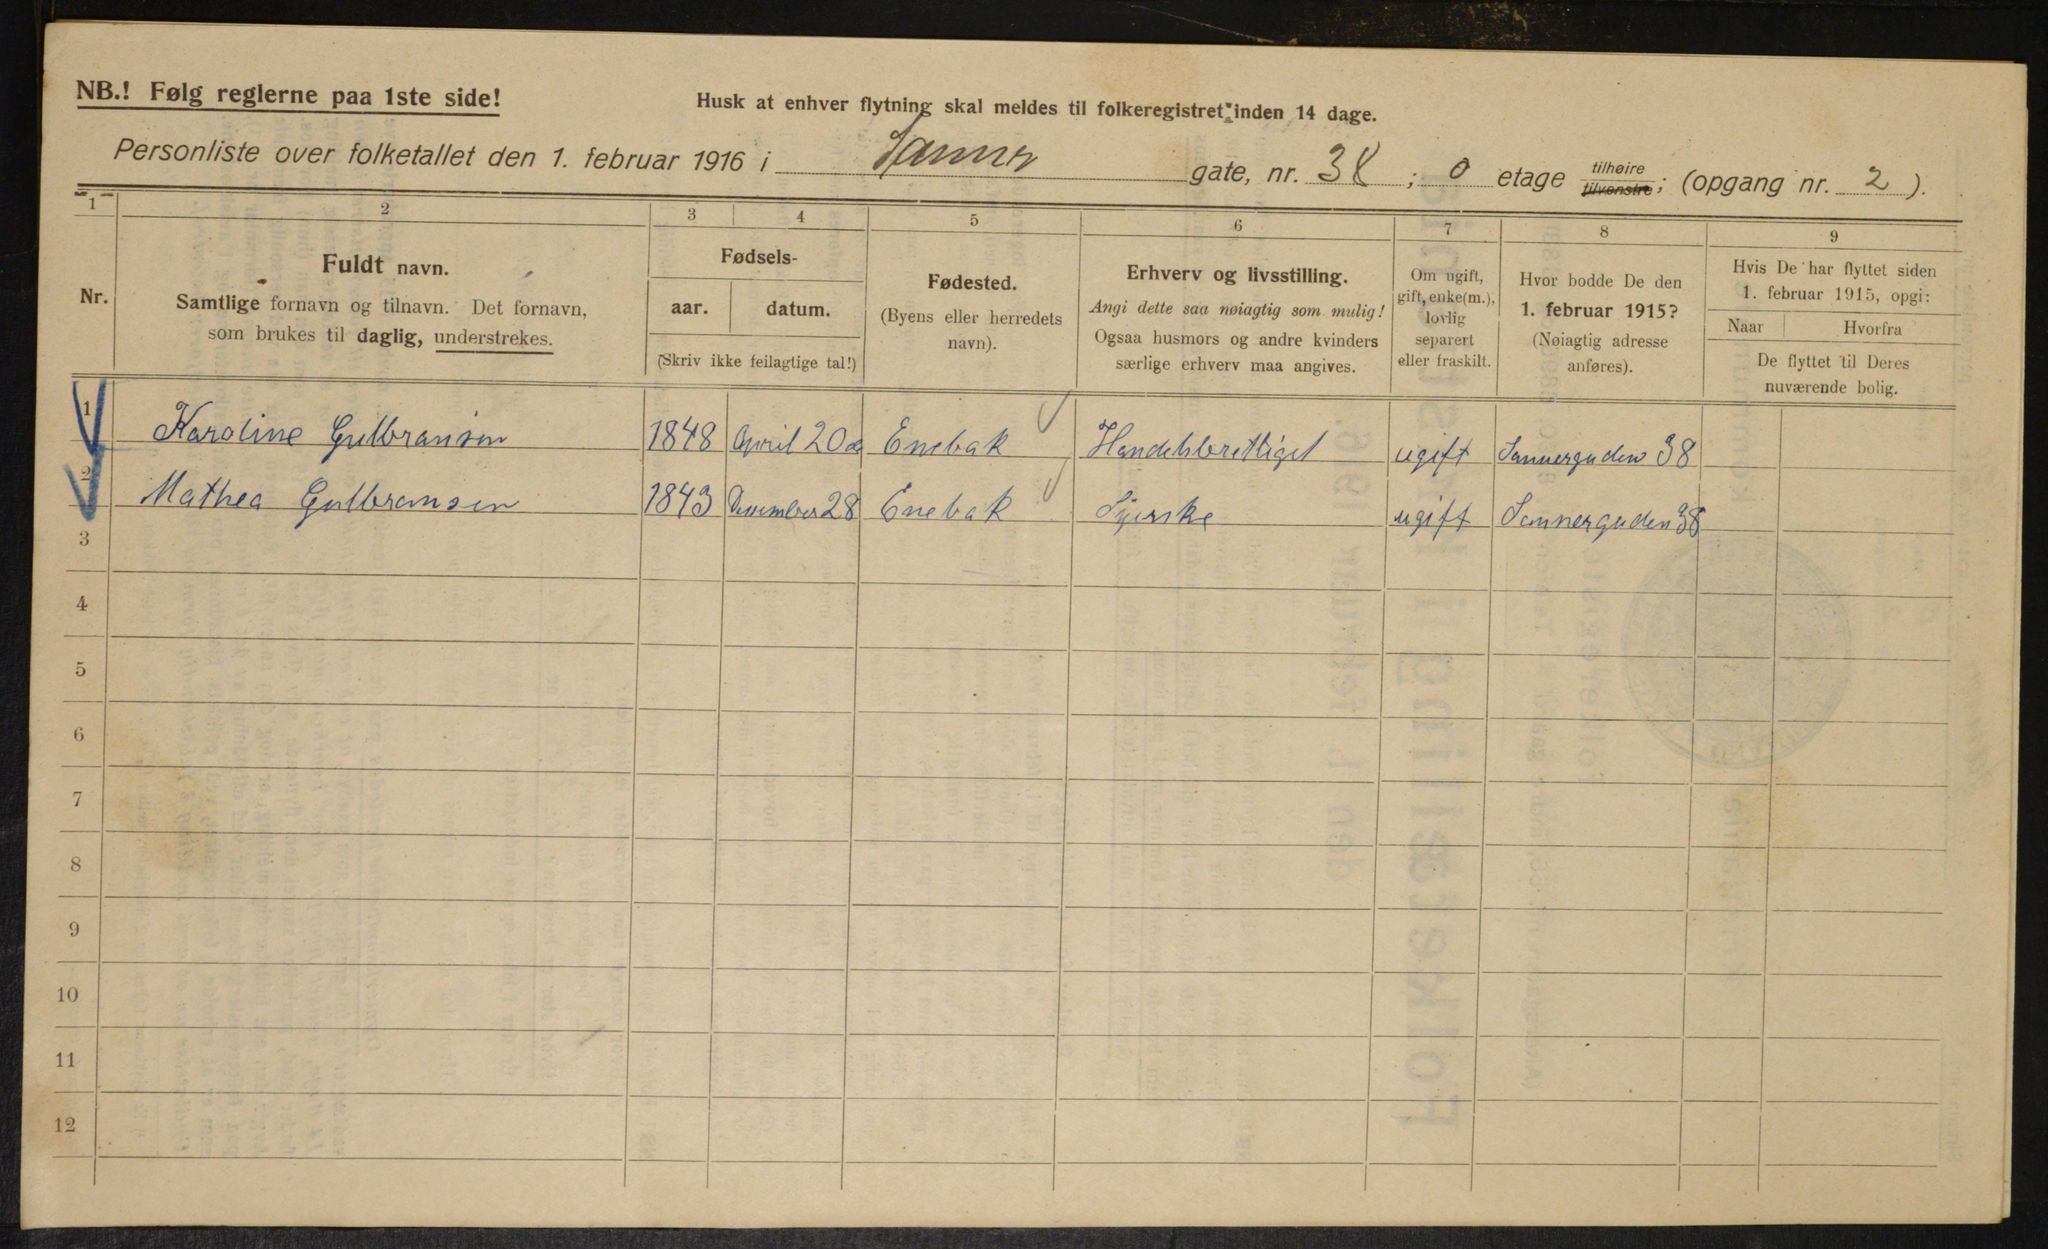 NB.! Følg reglerne paa 1ste side!
Husk at enhver flytning skal meldes til folkeregistret inden 14 dage.
Personliste over folketallet den 1. februar 1916 i Sanner gate, nr. 38 ; 0 etage tilhøire tilvenstre; (opgang nr. 2 ).
1 2 3 4 5 6 7 8 9
Nr.
Fuldt navn.
Samtlige fornavn og tilnavn. Det fornavn,
som brukes til daglig, understrekes.
Fødsels-
aar. datum.
(Skriv ikke feilagtige tal!)
Fødested.
(Byens eller herredets
navn).
Erhverv og livsstilling.
Angi dette saa nøiagtig som mulig!
Ogsaa husmors og andre kvinders
særlige erhverv maa angives.
Om ugift,
gift, enke(m.),
lovlig
separert
eller fraskilt.
Hvor bodde De den
1. februar 1915?
(Nøiagtig adresse
anføres).
Hvis De har flyttet siden
1. februar 1915, opgi:
Naar Hvorfra
De flyttet til Deres
nuværende bolig.
1 Karoline Gulbransen 1848 April 20 Enebak Handelsberettiget ugift Sannergaden 38
2 Mathea Gulbransen 1843 December 28 Enebak Syerske ugift Sannergaden 38
3
4
5
6
7
8
9
10
11
12